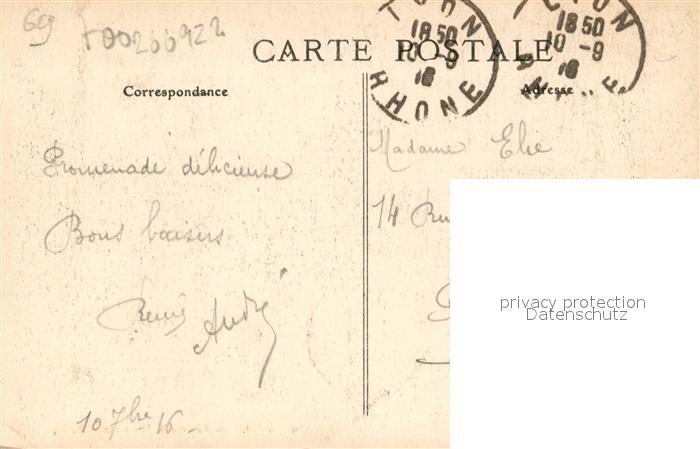 69
T00200922
CARTE POSTALE
Correspondance
Adresse
LYON
RHONE
18 50
10 -9
16
LYON
RHONE
18 50
10 -9
16
Promenade délicieuse
Bons baisers
André
10 7bre 16
Madame Elie
14 Ru
privacy protection
Datenschutz